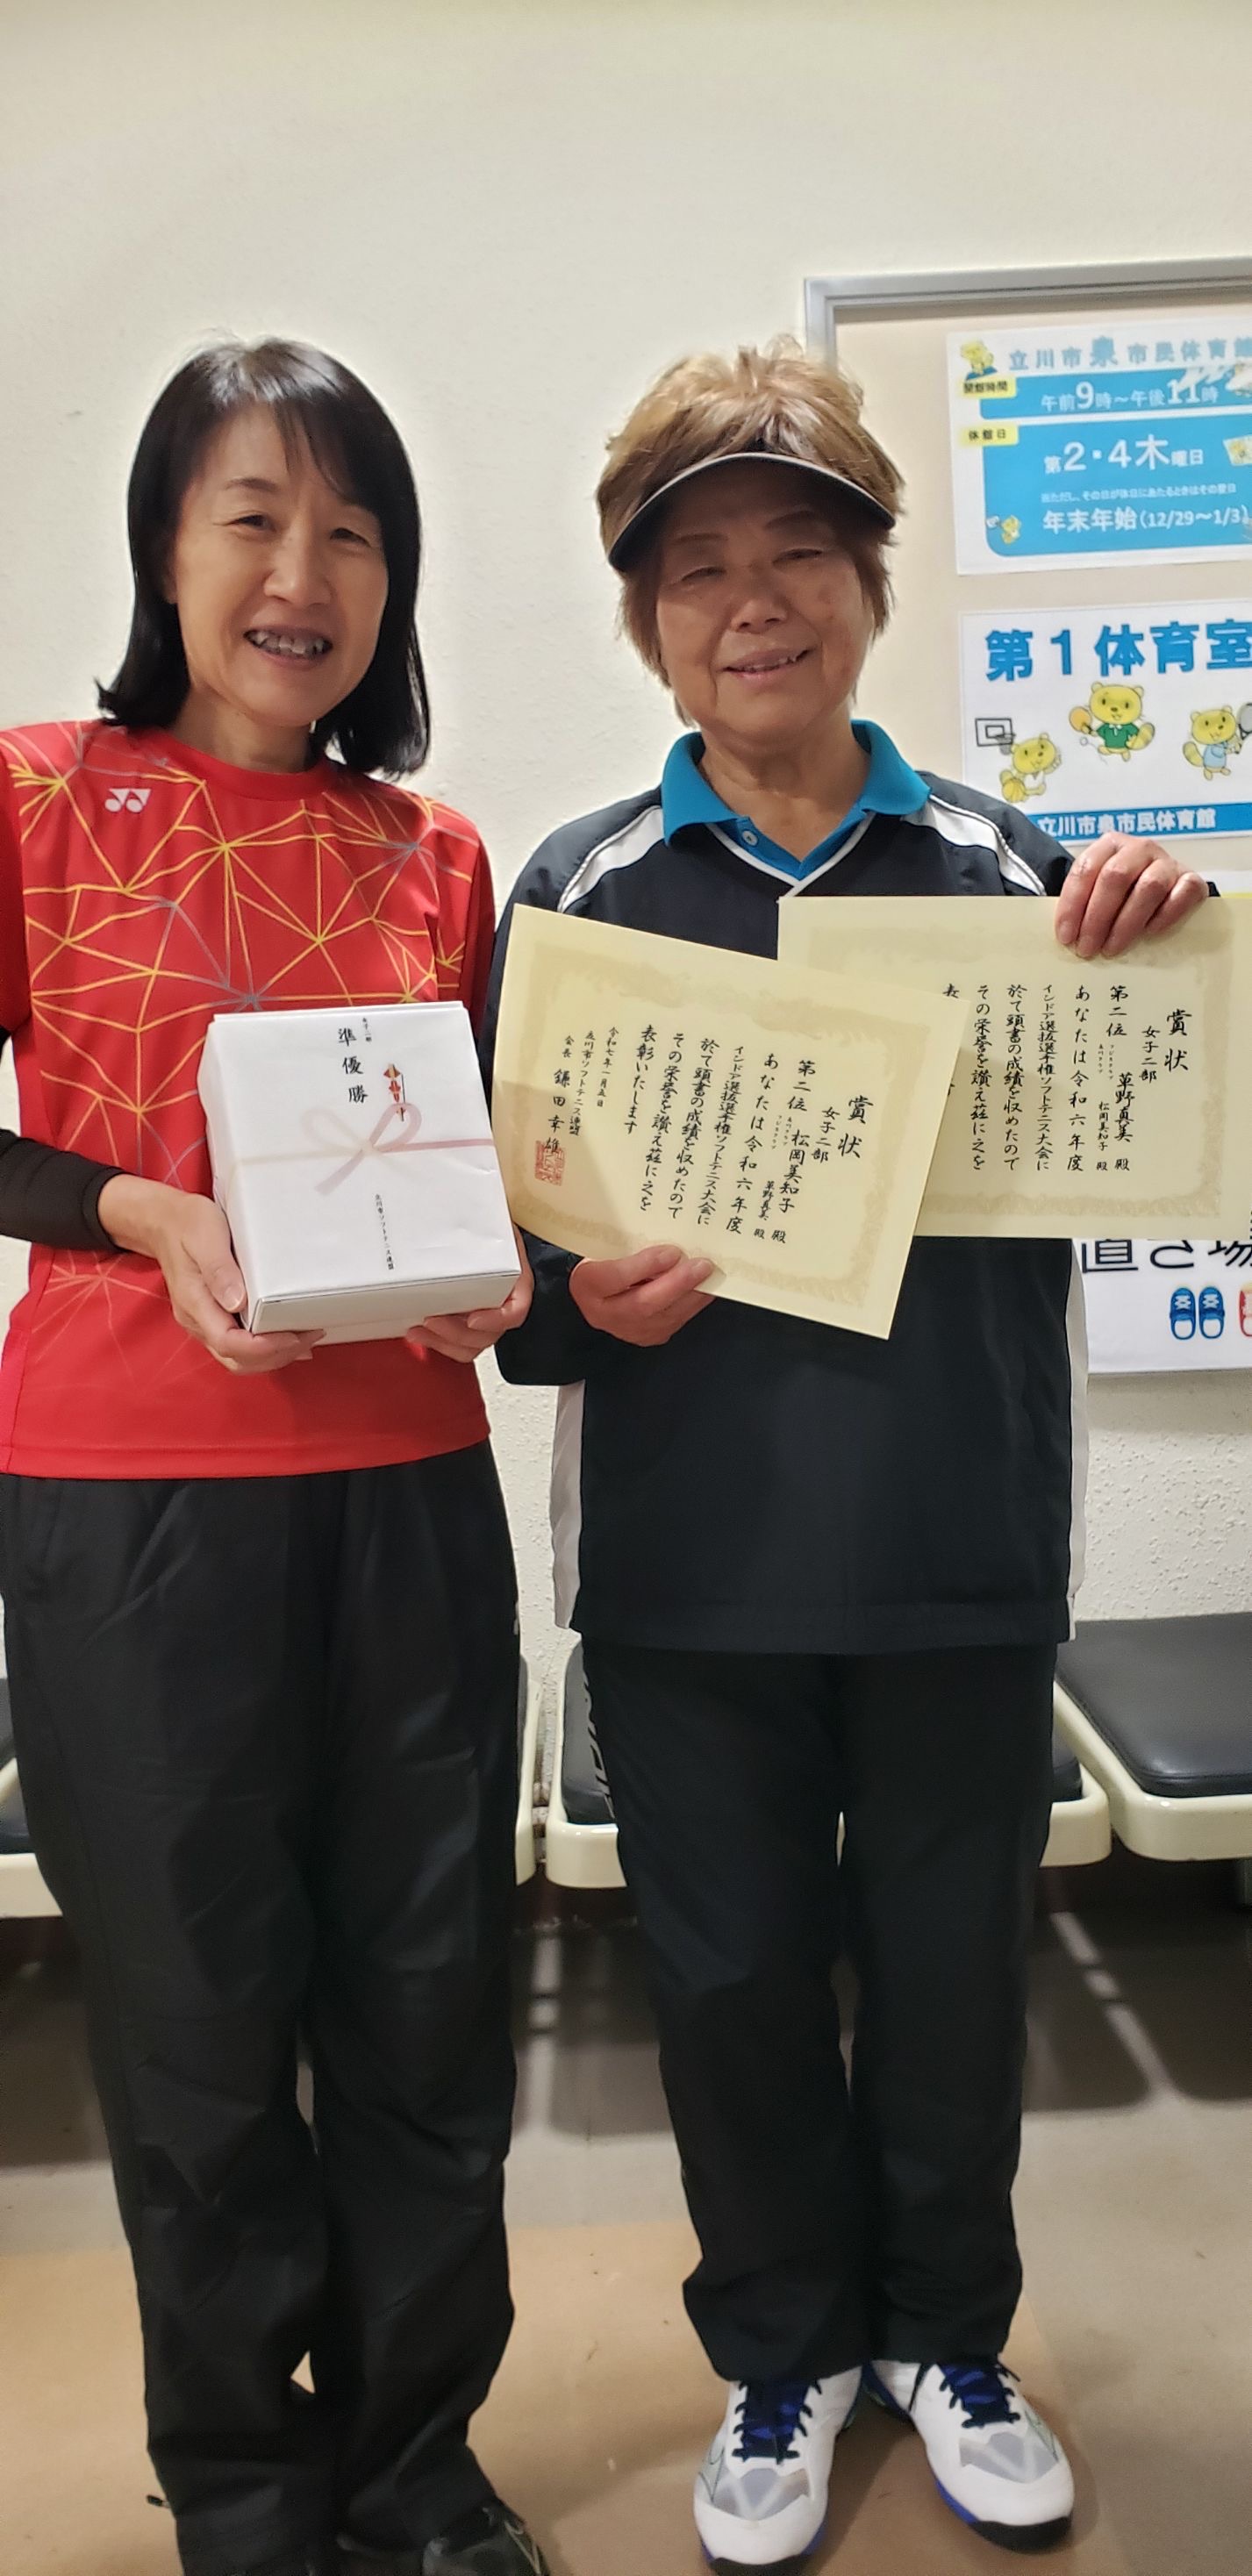 立川市泉市民体育館
開館時間
午前9時～午後11時
休館日
第2・4木曜日
年末年始(12/29～1/3)
第1体育室
立川市泉市民体育館
置き場
女子二部
準優勝
立川市ソフトテニス連盟
賞状
女子二部
第二位
松岡美知子 殿
草野真美 殿
あなたは令和六年度
インドア選抜選手権ソフトテニス大会に
於て頭書の成績を収めたので
その栄誉を讃え茲に之を
表彰いたします
令和七年一月五日
立川市ソフトテニス連盟
会長 鎌田幸雄
賞状
女子二部
第二位
草野真美 殿
松岡美知子 殿
あなたは令和六年度
インドア選抜選手権ソフトテニス大会に
於て頭書の成績を収めたので
その栄誉を讃え茲に之を
表